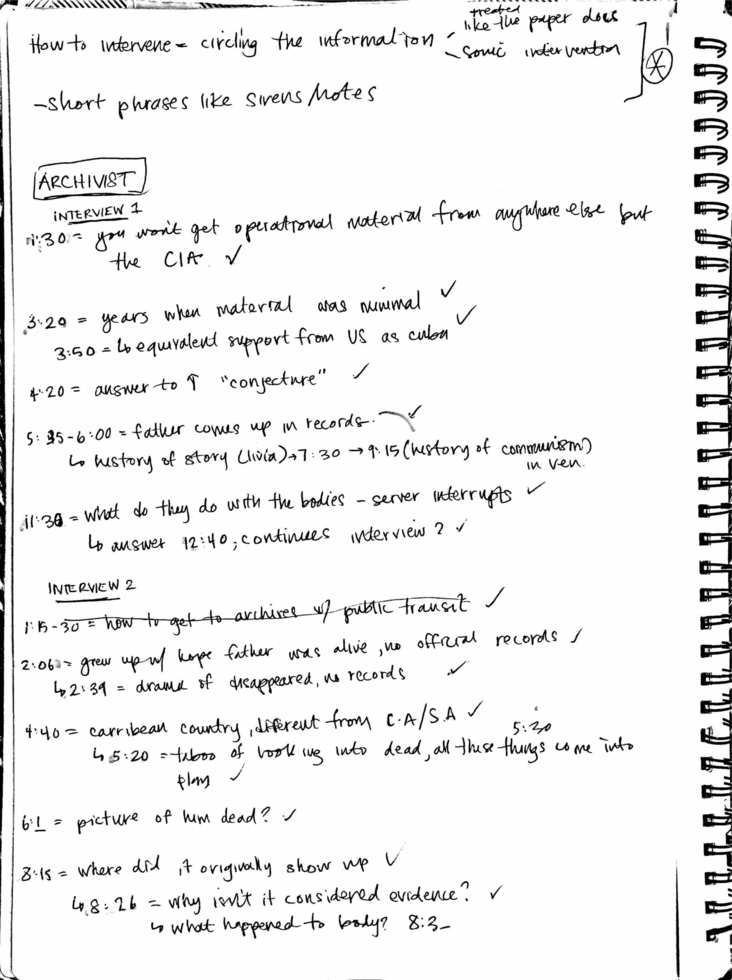 treated
How to intervene = circling the information - like the paper does
- sonic intervention
- short phrases like sirens / notes
ARCHIVIST
INTERVIEW 1
1:30 = you won't get operational material from anywhere else but
the CIA. ✓
3:20 = years when material was minimal ✓
3:50 = ↳ equivalent support from US as cuba ✓
4:20 = answer to ↑ "conjecture" ✓
5:35-6:00 = father comes up in records. ✓
↳ history of story (livia) → 7:30 → 9:15 (history of communism)
in ven.
11:30 = what do they do with the bodies - server interrupts ✓
↳ answer 12:40, continues interview 2 ✓
INTERVIEW 2
1:15-30 = how to get to archives w/ public transit ✓
2:06 = grew up w/ hope father was alive, no official records ✓
↳ 2:39 = drama of disappeared, no records ✓
4:40 = carribean country, different from C.A/S.A ✓
5:30
↳ 5:20 = taboo of looking into dead, all these things come into
play ✓
6:1 = picture of him dead? ✓
8:15 = where did it originally show up ✓
↳ 8:26 = why isn't it considered evidence? ✓
↳ what happened to body? 8:3_